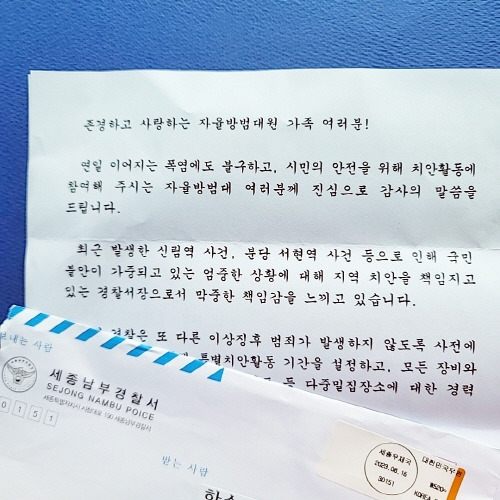 존경하고 사랑하는 자율방범대원 가족 여러분!
연일 이어지는 폭염에도 불구하고, 시민의 안전을 위해 치안활동에
참여해 주시는 자율방범대 여러분께 진심으로 감사의 말씀을
드립니다.
최근 발생한 신림역 사건, 분당 서현역 사건 등으로 인해 국민
불안이 가중되고 있는 엄중한 상황에 대해 지역 치안을 책임지고
있는 경찰서장으로서 막중한 책임감을 느끼고 있습니다.
경찰은 또 다른 이상징후 범죄가 발생하지 않도록 사전에
특별치안활동 기간을 설정하고, 모든 장비와
등 다중밀집장소에 대한 경력
보내는 사람
세종남부경찰서
SEJONG NAMBU POICE
30151
받는 사람
세종우체국
2023.08.16
30151
대한민국우표
₩520
KOREA